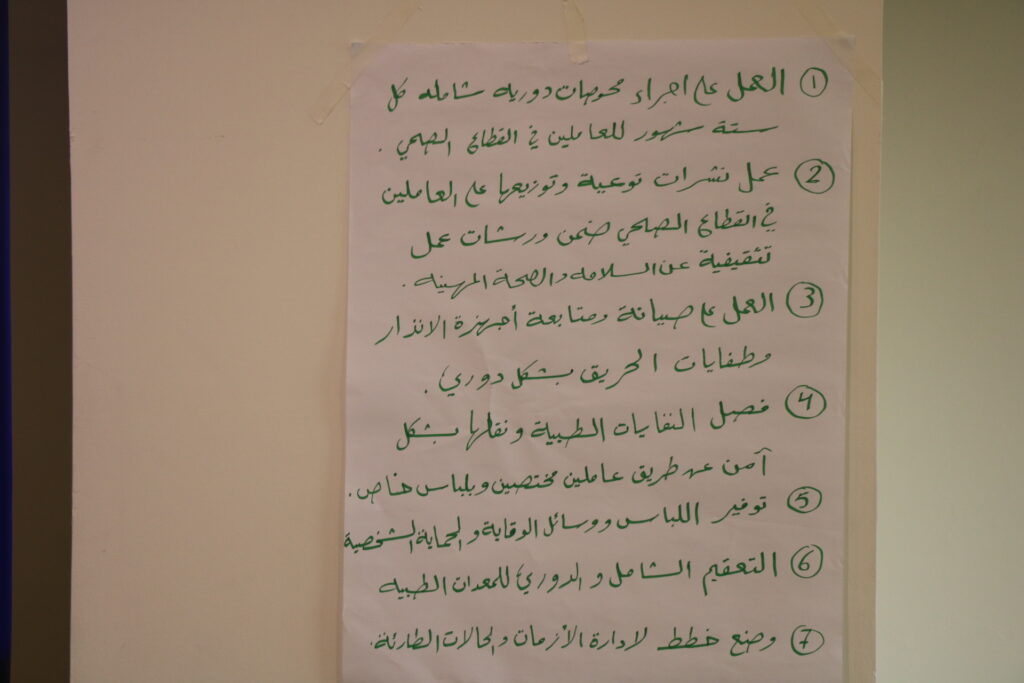 ① العمل على اجراء فحوصات دوريه شامله كل
ستة شهور للعاملين في القطاع الصحي .
② عمل نشرات توعية وتوزيعها على العاملين
في القطاع الصحي ضمن ورشات عمل
تثقيفية عن السلامه والصحة المهنيه .
③ العمل على صيانة ومتابعة أجهزة الانذار
وطفايات الحريق بشكل دوري .
④ فصل النفايات الطبية ونقلها بشكل
آمن عن طريق عاملين مختصين وبلباس خاص .
⑤ توفير اللباس ووسائل الوقاية والحماية الشخصية
⑥ التعقيم الشامل والدوري للمعدات الطبيه
⑦ وضع خطط لادارة الأزمات والحالات الطارئة .